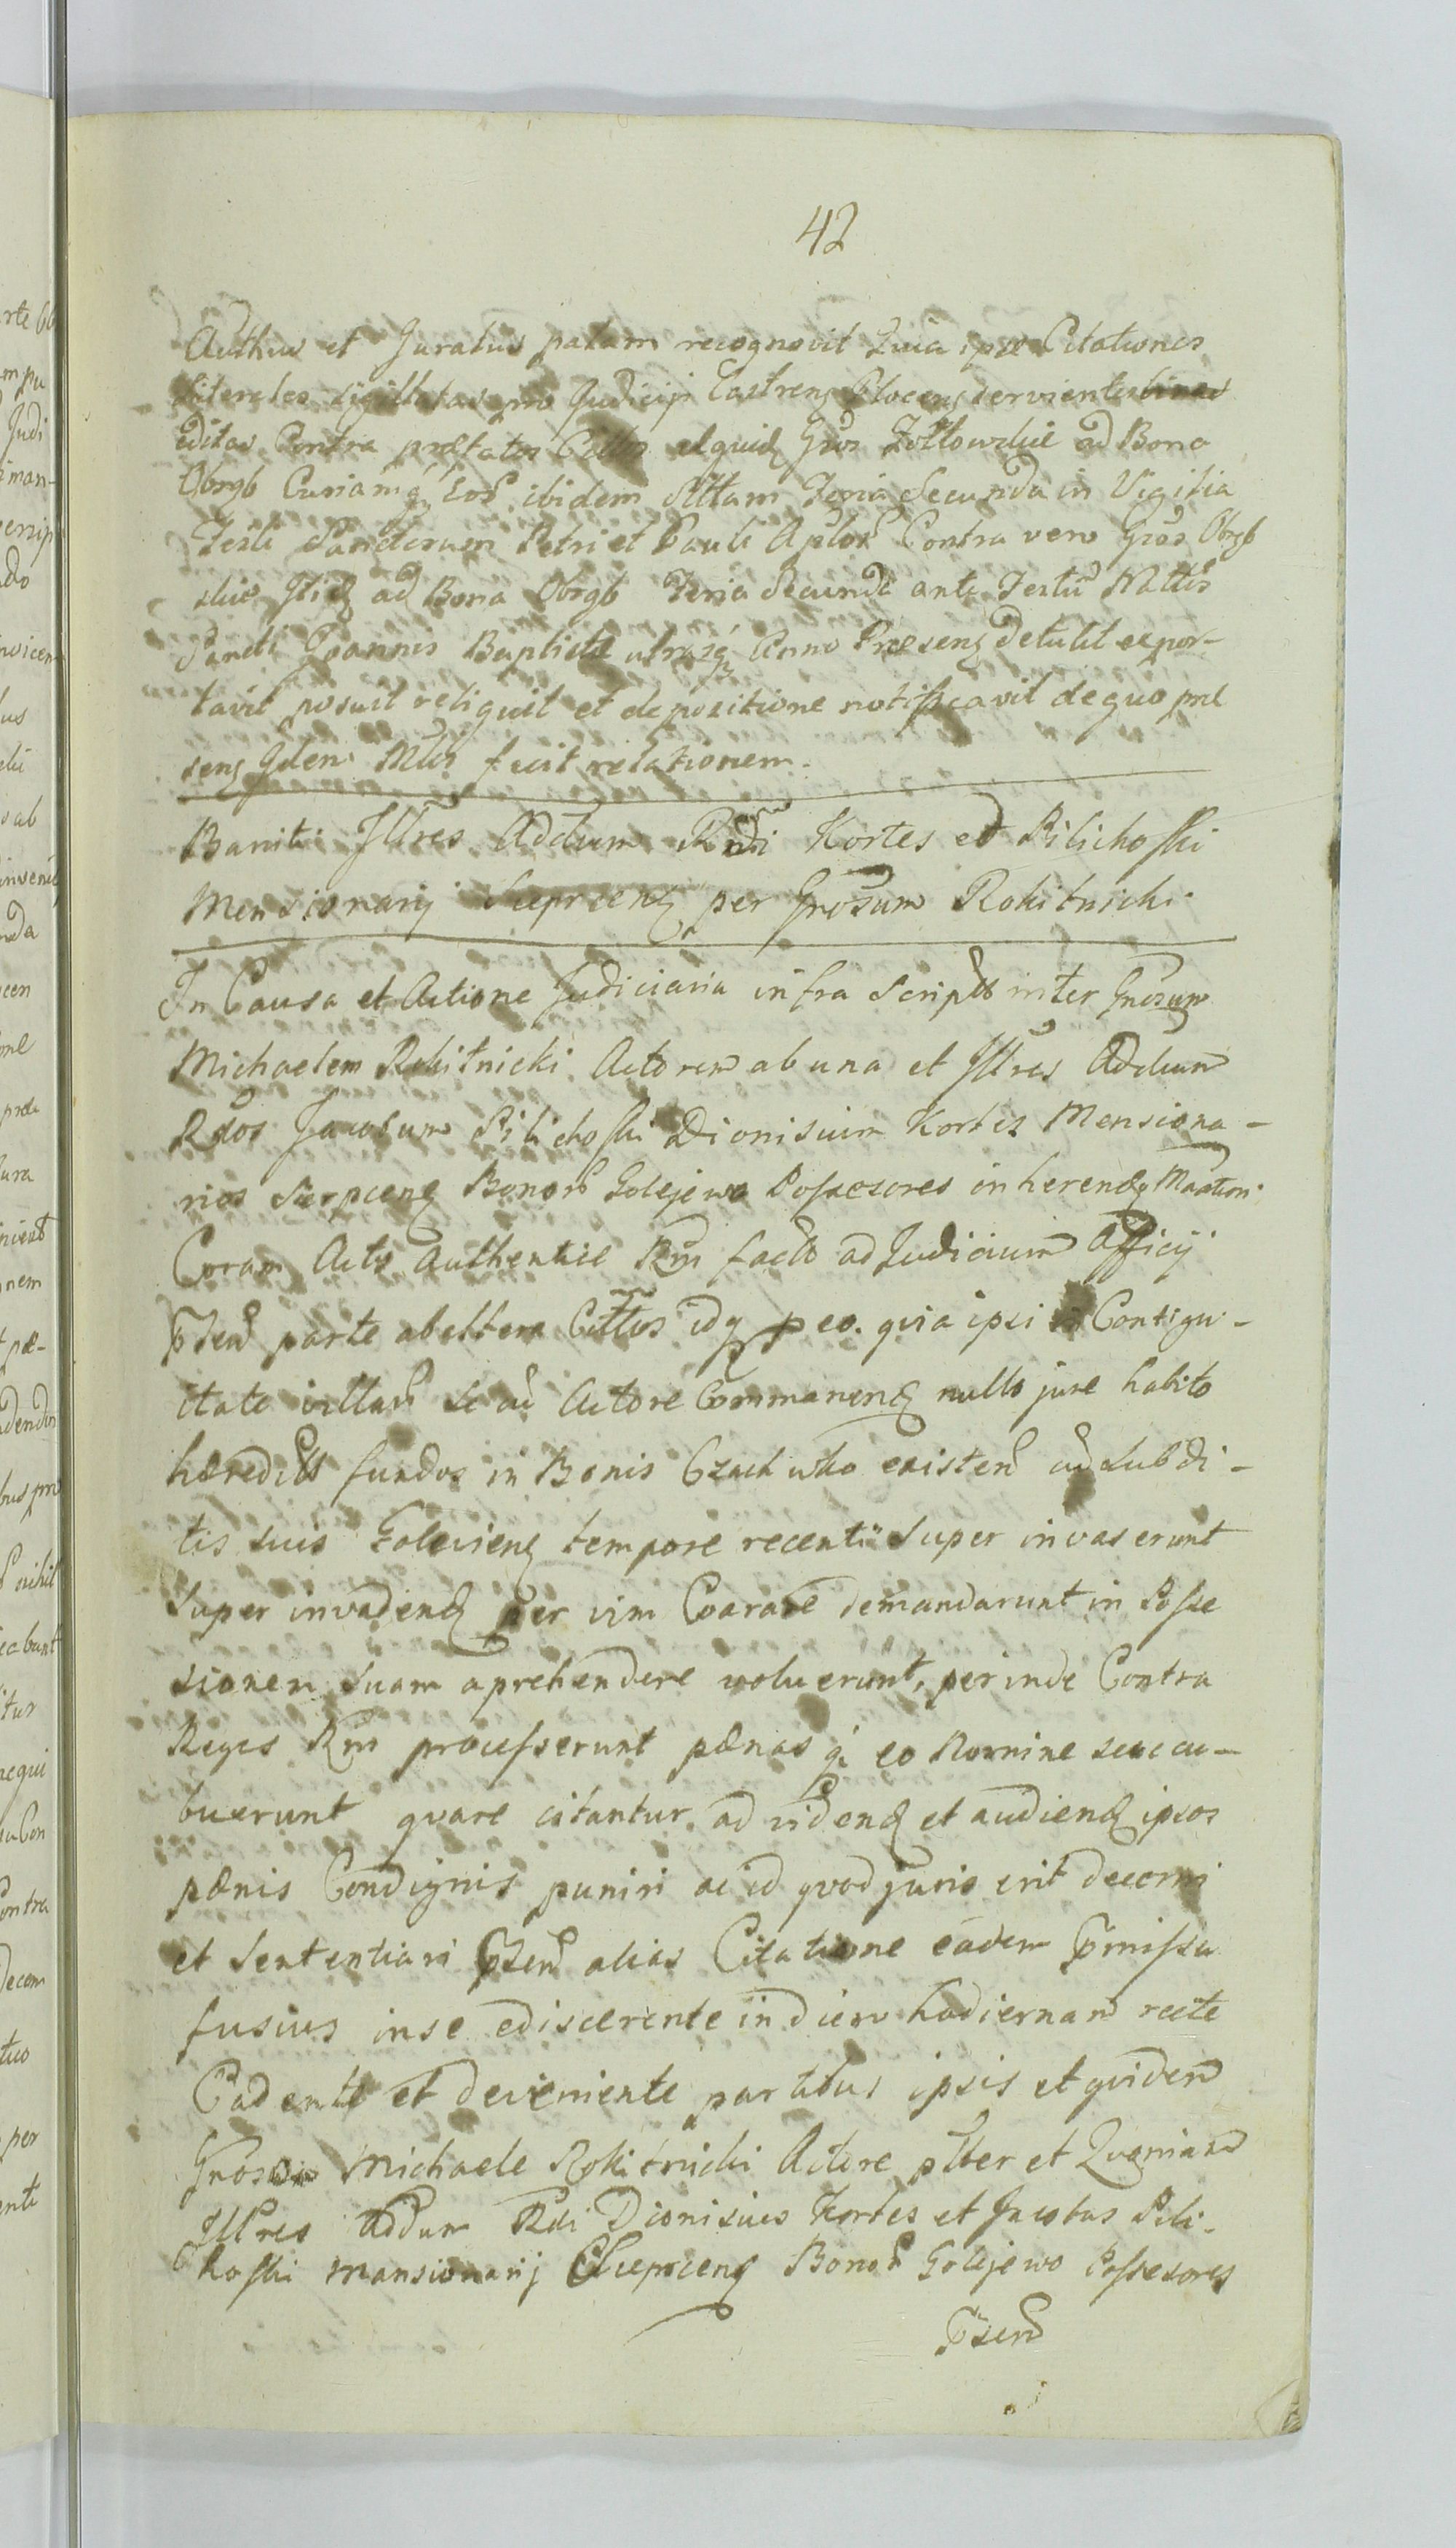 42
Authus et Juratus palam recognovit Quia ipse Citationes
literales sigillatas pro Judicijs Castrenȝ Plocenȝ servientes binas
editas Contra prætatos Cittos et quidȝ Gsos Zołtowskie ad Bona
Obrȩb Curiamqȝ Eorȝ ibidem Sittam Feria Secunda in Vigilia
Festi Sanctorum Petri et Pauli Aplorȝ Contra vero Gsos Obrȩb
skie Itidȝ ad Bona Obrȩb Feria Secunda ante Festū Nattis
Sancti Joannis Baptistæ utrasqȝ Anno Præsenȝ detulit expor-
tavit posuit reliquit et de positione notificavit de quo præ
senȝ Idem Mlis fecit relationem.
Baniti Illres Addum Rndi Kortes et Pilichoski
Mensionarij Sieprcenȝ per Gnosum Rokitnicki
In Causa et Actione Judiciaria infra Scripta inter Gnosum
Michaelem Rokitnicki Actorem ab una et Illres Addum
Rdos Jacobum Pilichoski Dionisium Kortes Mensiona-
rios Sierpcenȝ Bonorȝ Golejewo Possesores inherendȝ Maation
Coram Actis Authentice Rni facto ad Judicium Officij
Psen parte ab altera Cittos idqȝ p eo. quia ipsi in Contigu-
itate villarȝ Se cū Actore Commanenȝ nullo jure habito
hæredittis fundos in Bonis Czachowko existen cū Subdi-
tis suis Golevienȝ tempore recenti Super invaserunt
Super invadendȝ per vim Coarare demandarunt in Posse
sionem Suam aprehendere voluerunt, perinde Contra
Leges Rni processerunt pænas qȝ eo Nomine succu-
buerunt quare citantur ad videndȝ et audiendȝ ipsos
pænis Condignis puniri ac id quod juris erit decerni
et Sententiari Psen alias Citatione eadem Pmissa
fusius in se ediscerente in diem hodiernam recte
Cadente et deveniente partibus ipsis et quidem
Gnoso Michaele Rokitnicki Actore plter et Quoniam
Illres Addum Rdi Dionisius Kortes et Jacobus Pili-
hoski Mansionarij Sieprcenȝ Bonorȝ Golejewo Possesores
Psen